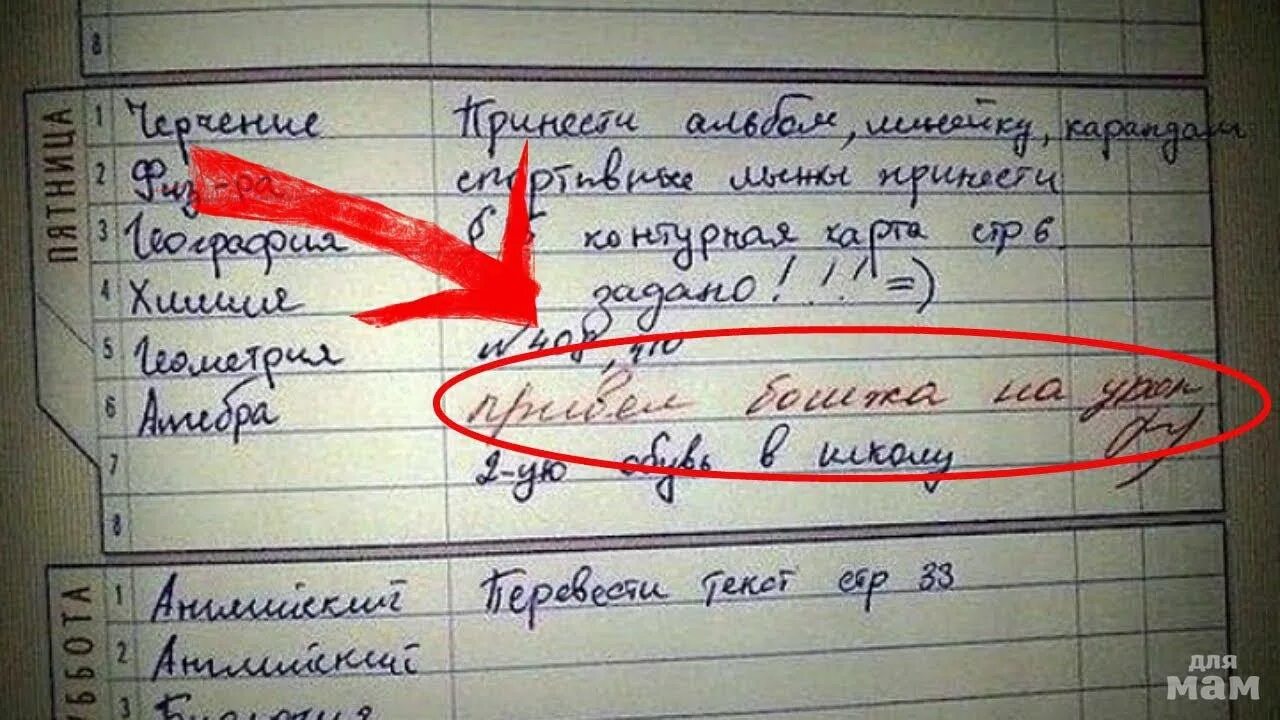 8
ПЯТНИЦА
1 Черчение Принести альбом, линейку, карандаш
2 Физ-ра спортивные лыжы принести
3 География контурная карта стр 6
4 Химия задано!!! =)
5 Геометрия №408, 410
6 Алгебра привёл бомжа на урок
7 2-ую обувь в школу
8
СУББОТА
1 Английский Перевести текст стр 33
2 Английский
3 Биология
для
мам